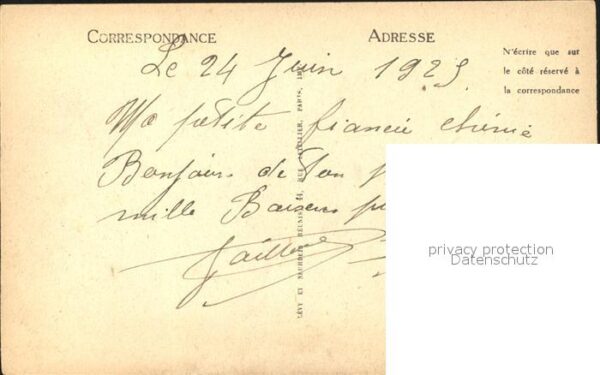 CORRESPONDANCE
ADRESSE
N'écrire que sur
le côté réservé à
la correspondance
Le 24 Juin 1925
Ma petite fiancée chérie
Bonjour de Ton
mille Baisers
LÉVY ET NEURDEIN RÉUNIS, 44, RUE LETELLIER, PARIS, IMP
privacy protection
Datenschutz